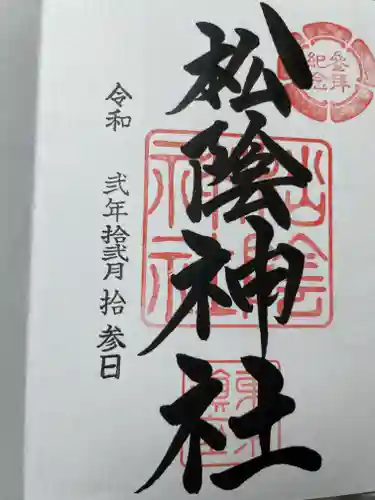 松陰神社
令和 弐年拾弐月拾参日
参拝紀念
松陰神社